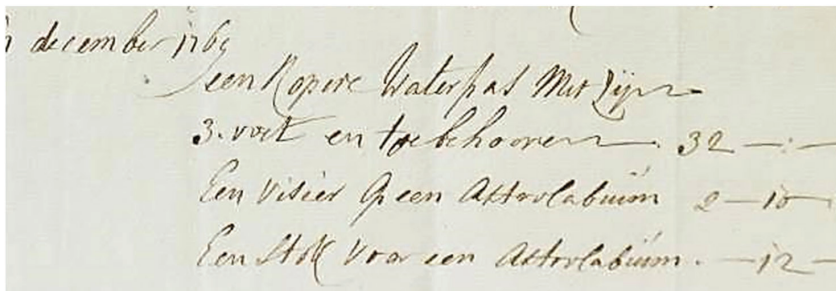 december 1769
een Kopere Waterpas Met Zijn
3. voet en toebehooren . 32 — : —
Een Visier Op een Astrolabuim 2 — 10
Een Stok Voor een Astrolabuim . — 12 —